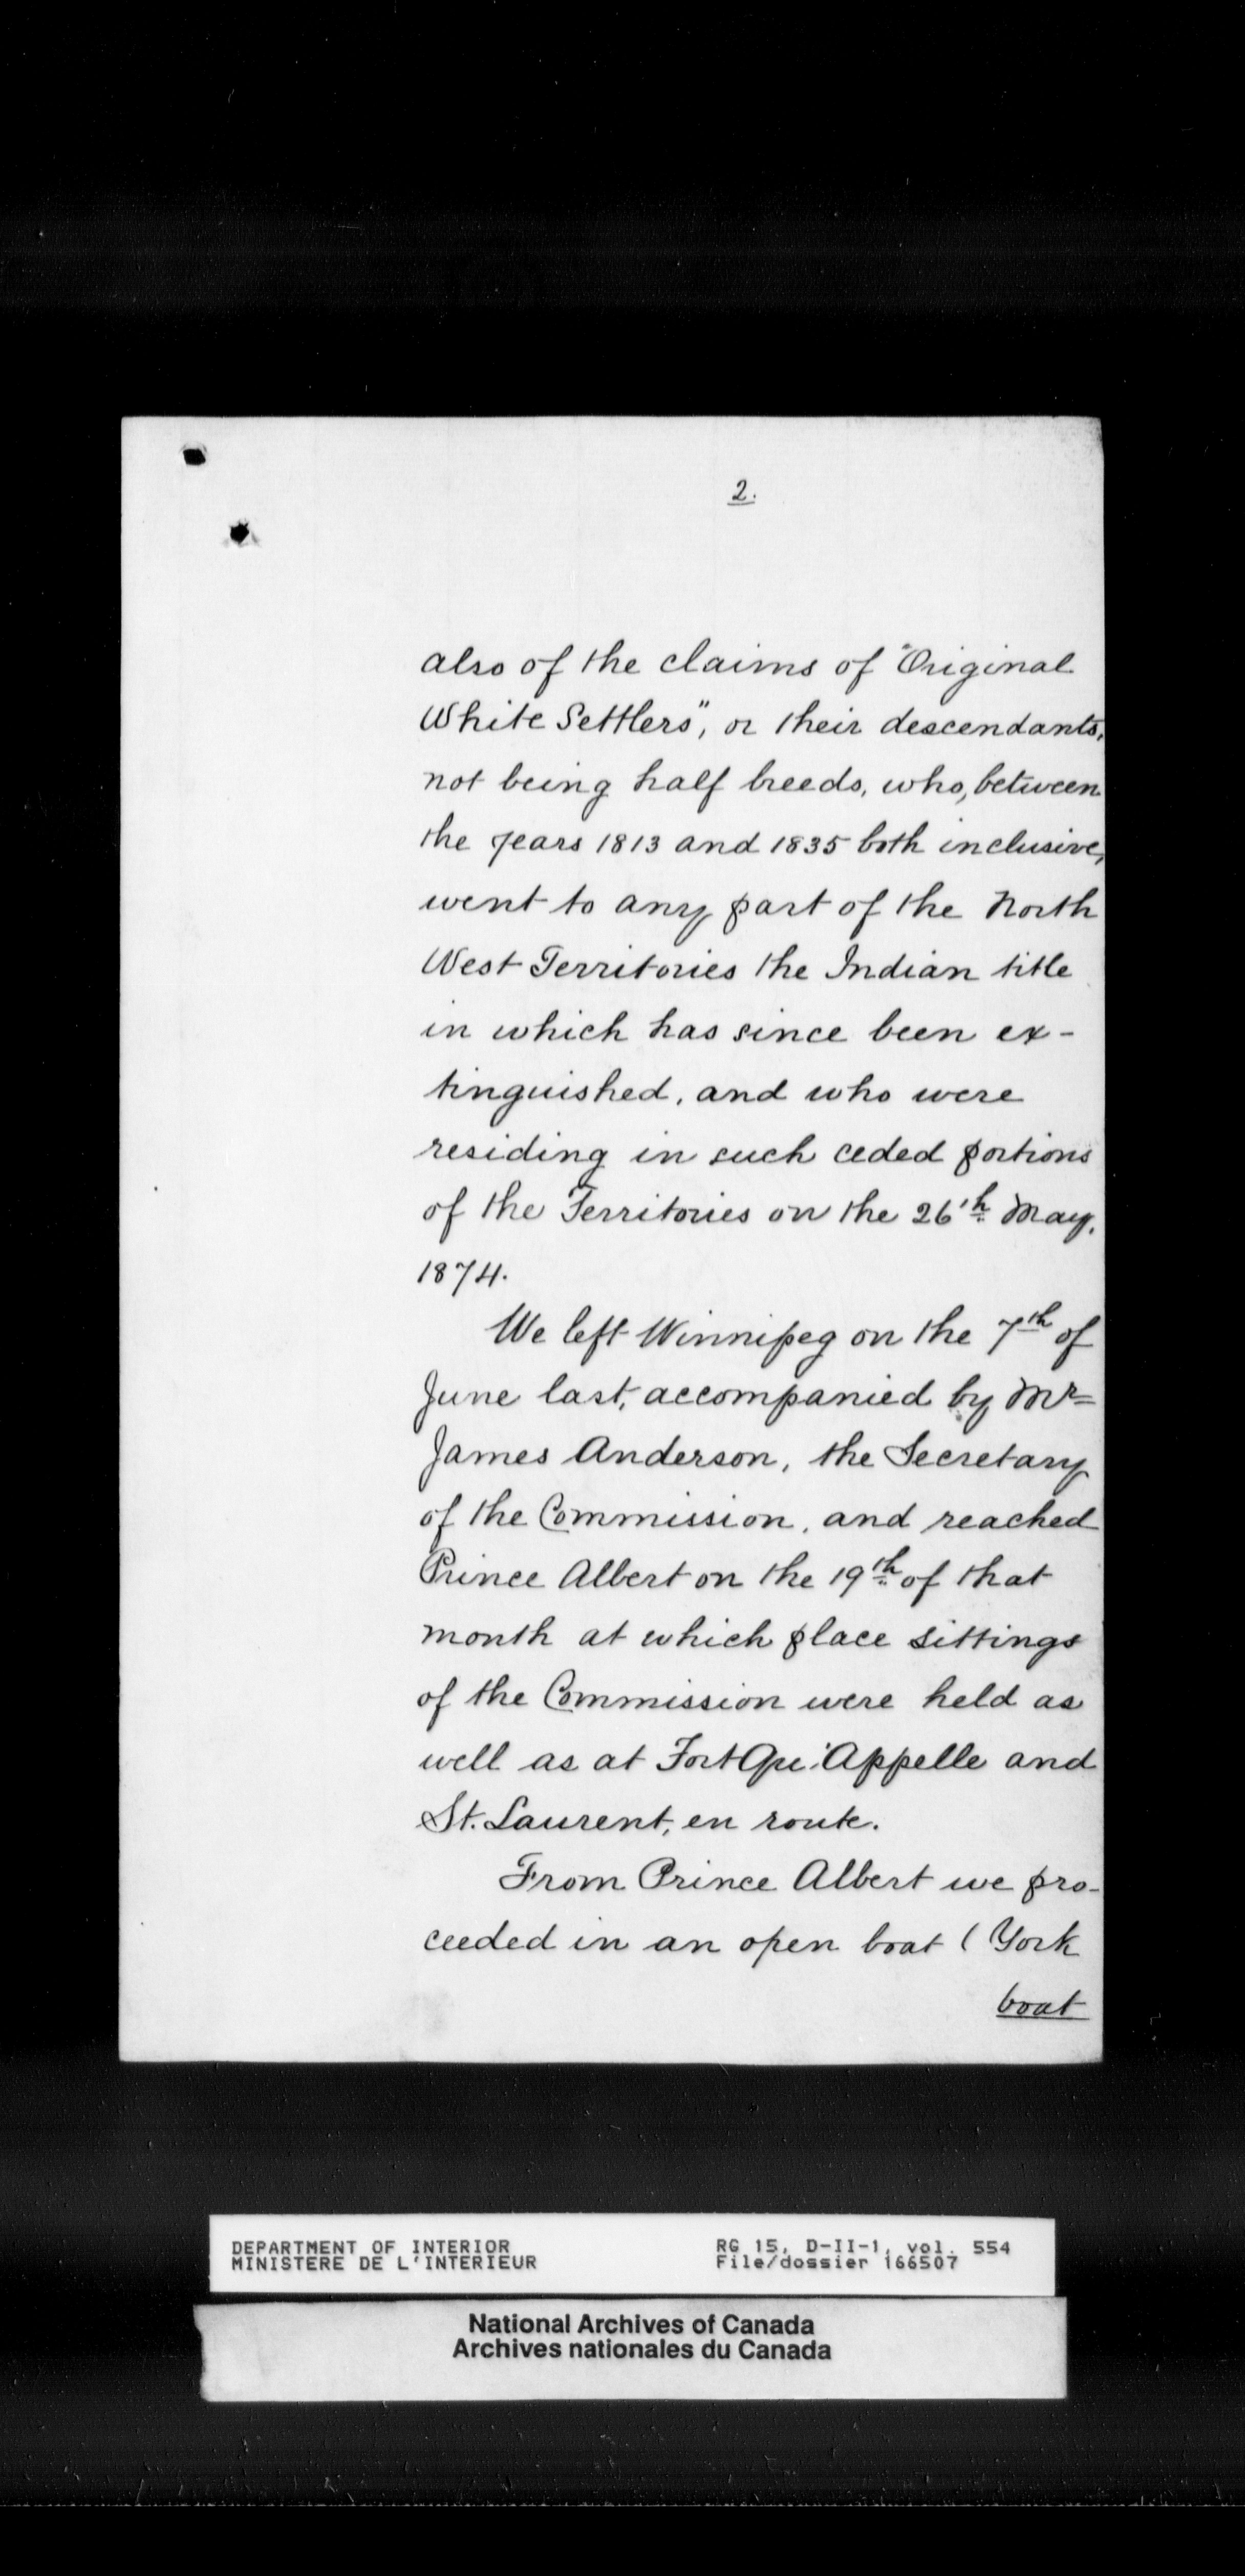 2.
also of the claims of "Original
White Settlers", or their descendants,
not being half breeds, who, between
the years 1813 and 1835 both inclusive,
went to any part of the North
West Territories the Indian title
in which has since been ex-
tinguished, and who were
residing in such ceded portions
of the Territories on the 26th May,
1874.
We left Winnipeg on the 7th of
June last, accompanied by Mr
James Anderson, the Secretary
of the Commission, and reached
Prince Albert on the 19th of that
month at which place sittings
of the Commission were held as
well as at Fort Qu'Appelle and
St. Laurent, en route.
From Prince Albert we pro-
ceeded in an open boat (York
boat
DEPARTMENT OF INTERIOR RG 15, D-II-1, vol. 554
MINISTERE DE L'INTERIEUR File/dossier 166507
National Archives of Canada
Archives nationales du Canada